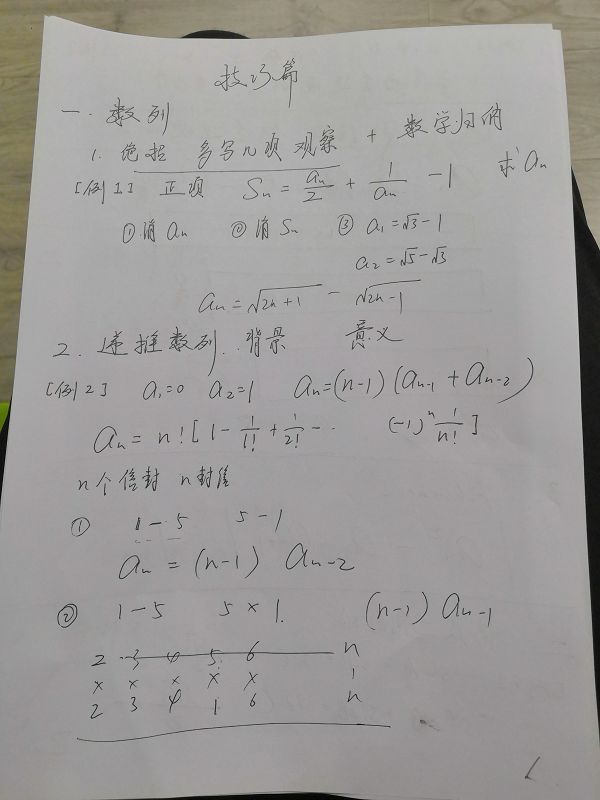 技巧篇
一.数列
1. 绝招 多写几项 观察 + 数学归纳
[例1] 正项 Sn = an/2 + 1/an - 1 求 an
①消 an ②消 Sn ③ a1 = √3 - 1
a2 = √5 - √3
an = √2n+1 - √2n-1
2. 递推数列. 背景 意义
[例2] a1=0 a2=1 an=(n-1)(an-1 + an-2)
an = n! [ 1 - 1/1! + 1/2! - … (-1)^n 1/n! ]
n个信封 n封信
① 1-5 5-1
an = (n-1) an-2
② 1-5 5×1. (n-1) an-1
2 3 4 5 6 n
× × × × × 1
2 3 4 1 6 n